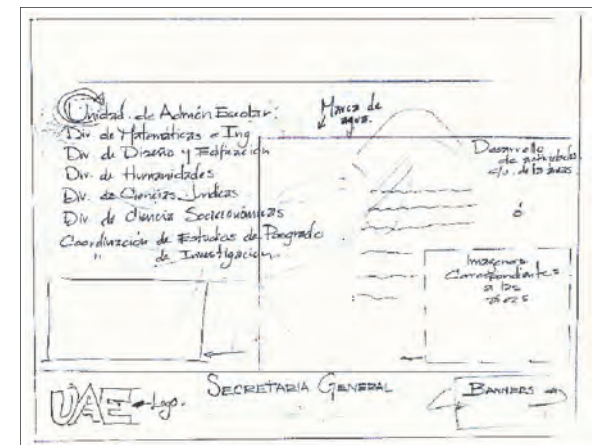 Unidad de Admón Escolar:
Div. de Matemáticas e Ing
Div. de Diseño y Edificación
Div. de Humanidades
Div. de Ciencias Jurídicas
Div. de Ciencia Socieconómicas
Coordinación de Estudios de Posgrado
" de Investigación
Marca de
agua.
Desarrollo
de actividades
c/u. de las áreas
ó
Imagenes
Correspondientes
a las
áreas
UAE
Logo.
SECRETARIA GENERAL
BANNERS